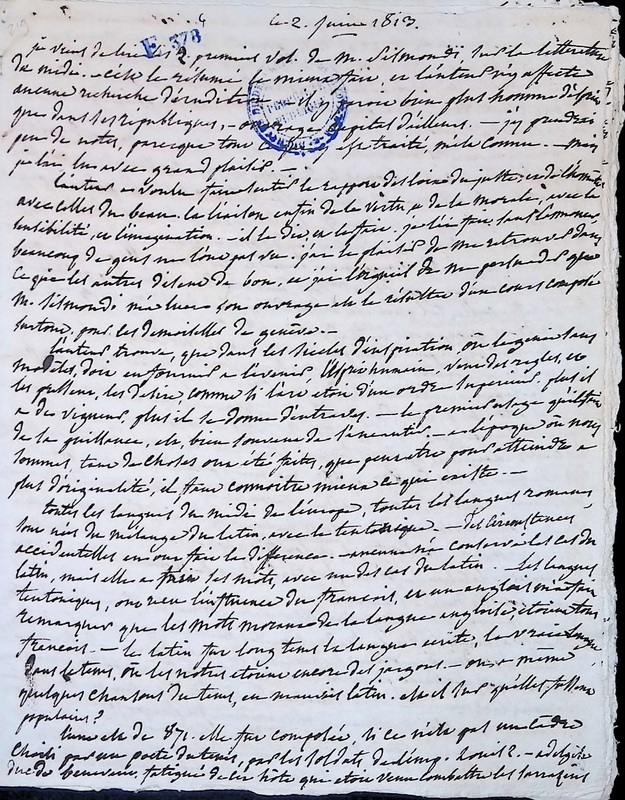 4 le 2. juin 1813.
F 378
je viens de lire les 2 premiers vol. de M. Sismondi, sur la litterature
du midi. - C'est le résumé le mieux fait, et l'auteur n'y affecte
aucune recherche d'érudite il y paroit bien plus homme d'esprit
que dans ses republiques, - ouvrage capital d'ailleurs. - j'y prendrai
peu de notes, parceque tout est traité, mile connu. - mais
je l'ai lu avec grand plaisir. -
l'auteur a voulu faire sentir le rapport des loix du juste, et de l'honnête
avec celles du beau. la liaison enfin de la vertu, & de la morale, avec la
sensibilité, et l'imagination. - il le dit, et l'a fait. je l'ai fait, sans l'annoncer,
beaucoup de gens ne l'ont pas vu. j'ai le plaisir de me retrouver dans
ce que les autres disent de bon, et j'ai l'orgueil de me persuader que
M. Sismondi m'a lue. son ouvrage est le résultat d'un cours composé
surtout, pour les demoiselles de genève. -
l'auteur trouve, que dans les siècles d'inspiration, où le genie sans
modèles, doit en fournir a l'avenir l'esprit humain, veut des règles, et
les presseur, les desire, comme si l'art étoit d'un ordre superieur, plus il
a de vigueur, plus il se donne d'entraves. - le premier usage qu'il fait
de la puissance, est bien souvent de l'aneantir. - a l'époque où nous
sommes, tant de choses ont été faites, que peut être pour atteindre a
plus d'originalité, il faut connoitre mieux ce qui existe. -
toutes les langues du midi de l'europe, toutes les langues romanes
sont nées du mélange du latin, avec le teutonique. - des circonstances
accidentelles en ont fait la difference. - aucune n'a conservé les cas du
latin, mais elle a ses mots, avec un des cas du latin. - les langues
teutoniques, ont reçu l'influence du françois, et un anglois m'a fait
remarquer que les mots moraux de la langue angloise, étoient tous
françois. - le latin fut long tems la langue ecrite, la vraie langue
dans le tems, où les notres etoient encore des jargons. - on a même
quelques chansons du tems, en mauvais latin. est il sur qu'elles fussent
populaires?
l'une est de 871. elle fut composée, si ce n'est pas un cadre
choisi par un poete du tems, par les soldats de l'emp. Louis 2. - adelgise
duc de benevent, fatigué de cet hôte qui etoit venu combattre les sarrazins